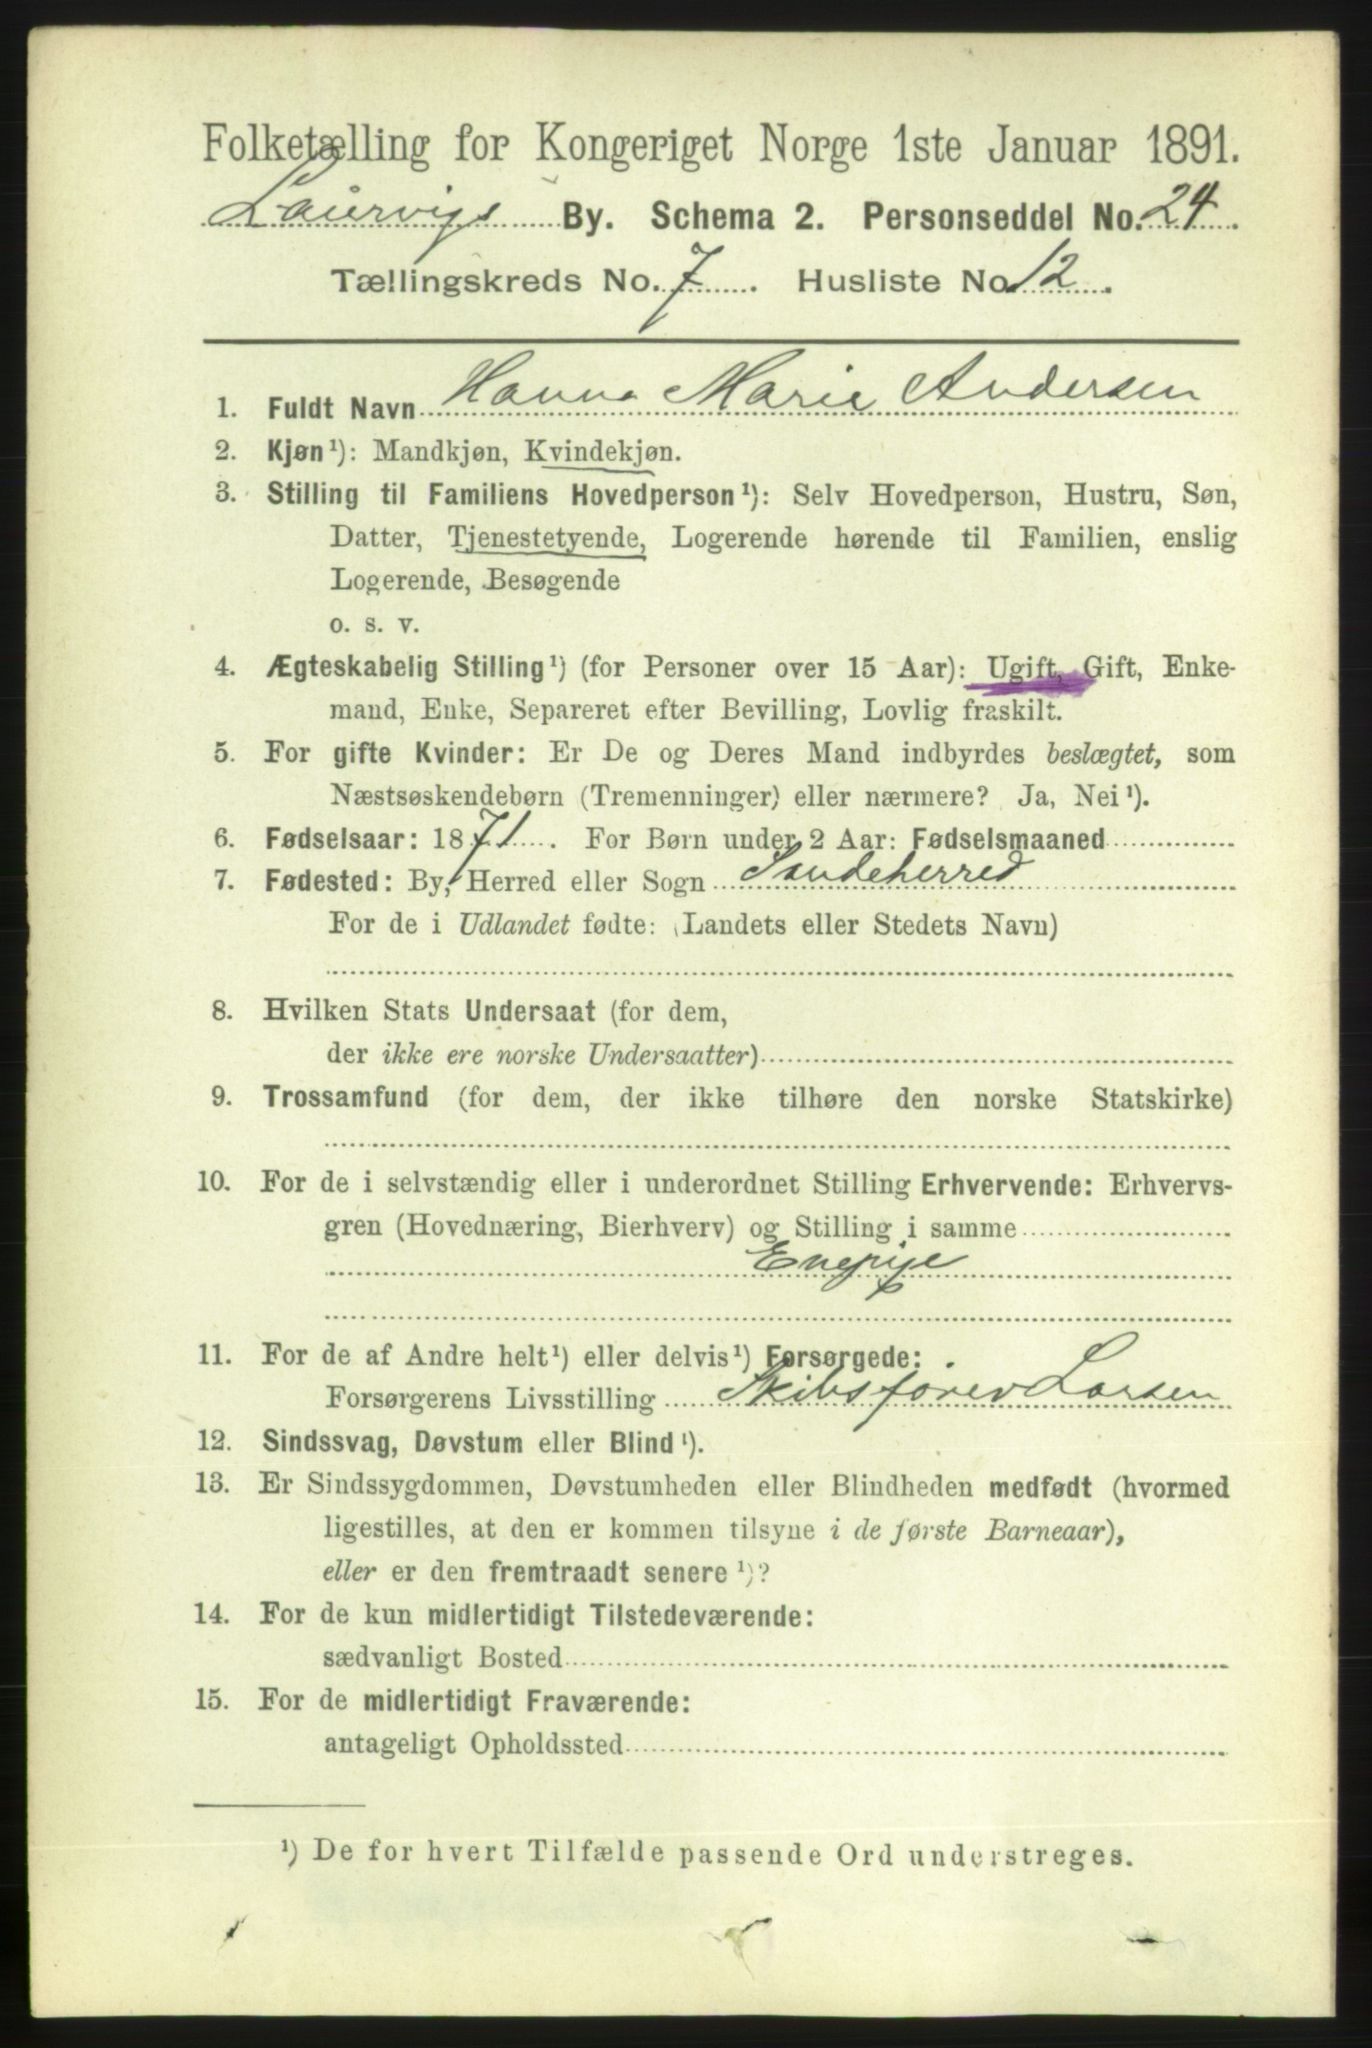 Folketælling for Kongeriget Norge 1ste Januar 1891.
Laurvigs By. Schema 2. Personseddel No. 24.
Tællingskreds No. 7. Husliste No 12.
1. Fuldt Navn Hanna Marie Andersen
2. Kjøn¹): Mandkjøn, Kvindekjøn.
3. Stilling til Familiens Hovedperson¹): Selv Hovedperson, Hustru, Søn,
Datter, Tjenestetyende, Logerende hørende til Familien, enslig
Logerende, Besøgende
o. s. v.
4. Ægteskabelig Stilling¹) (for Personer over 15 Aar): Ugift, Gift, Enke-
mand, Enke, Separeret efter Bevilling, Lovlig fraskilt.
5. For gifte Kvinder: Er De og Deres Mand indbyrdes beslægtet, som
Næstsøskendebørn (Tremenninger) eller nærmere? Ja, Nei¹).
6. Fødselsaar: 1871. For Børn under 2 Aar: Fødselsmaaned
7. Fødested: By, Herred eller Sogn Sandeherred
For de i Udlandet fødte: (Landets eller Stedets Navn)
8. Hvilken Stats Undersaat (for dem,
der ikke ere norske Undersaatter)
9. Trossamfund (for dem, der ikke tilhøre den norske Statskirke)
10. For de i selvstændig eller i underordnet Stilling Erhvervende: Erhvervs-
gren (Hovednæring, Bierhverv) og Stilling i samme
Enepige
11. For de af Andre helt¹) eller delvis¹) Forsørgede:
Forsørgerens Livsstilling Skibsfører Larsen
12. Sindssvag, Døvstum eller Blind¹).
13. Er Sindssygdommen, Døvstumheden eller Blindheden medfødt (hvormed
ligestilles, at den er kommen tilsyne i de første Barneaar),
eller er den fremtraadt senere¹)?
14. For de kun midlertidigt Tilstedeværende:
sædvanligt Bosted
15. For de midlertidigt Fraværende:
antageligt Opholdssted
¹) De for hvert Tilfælde passende Ord understreges.